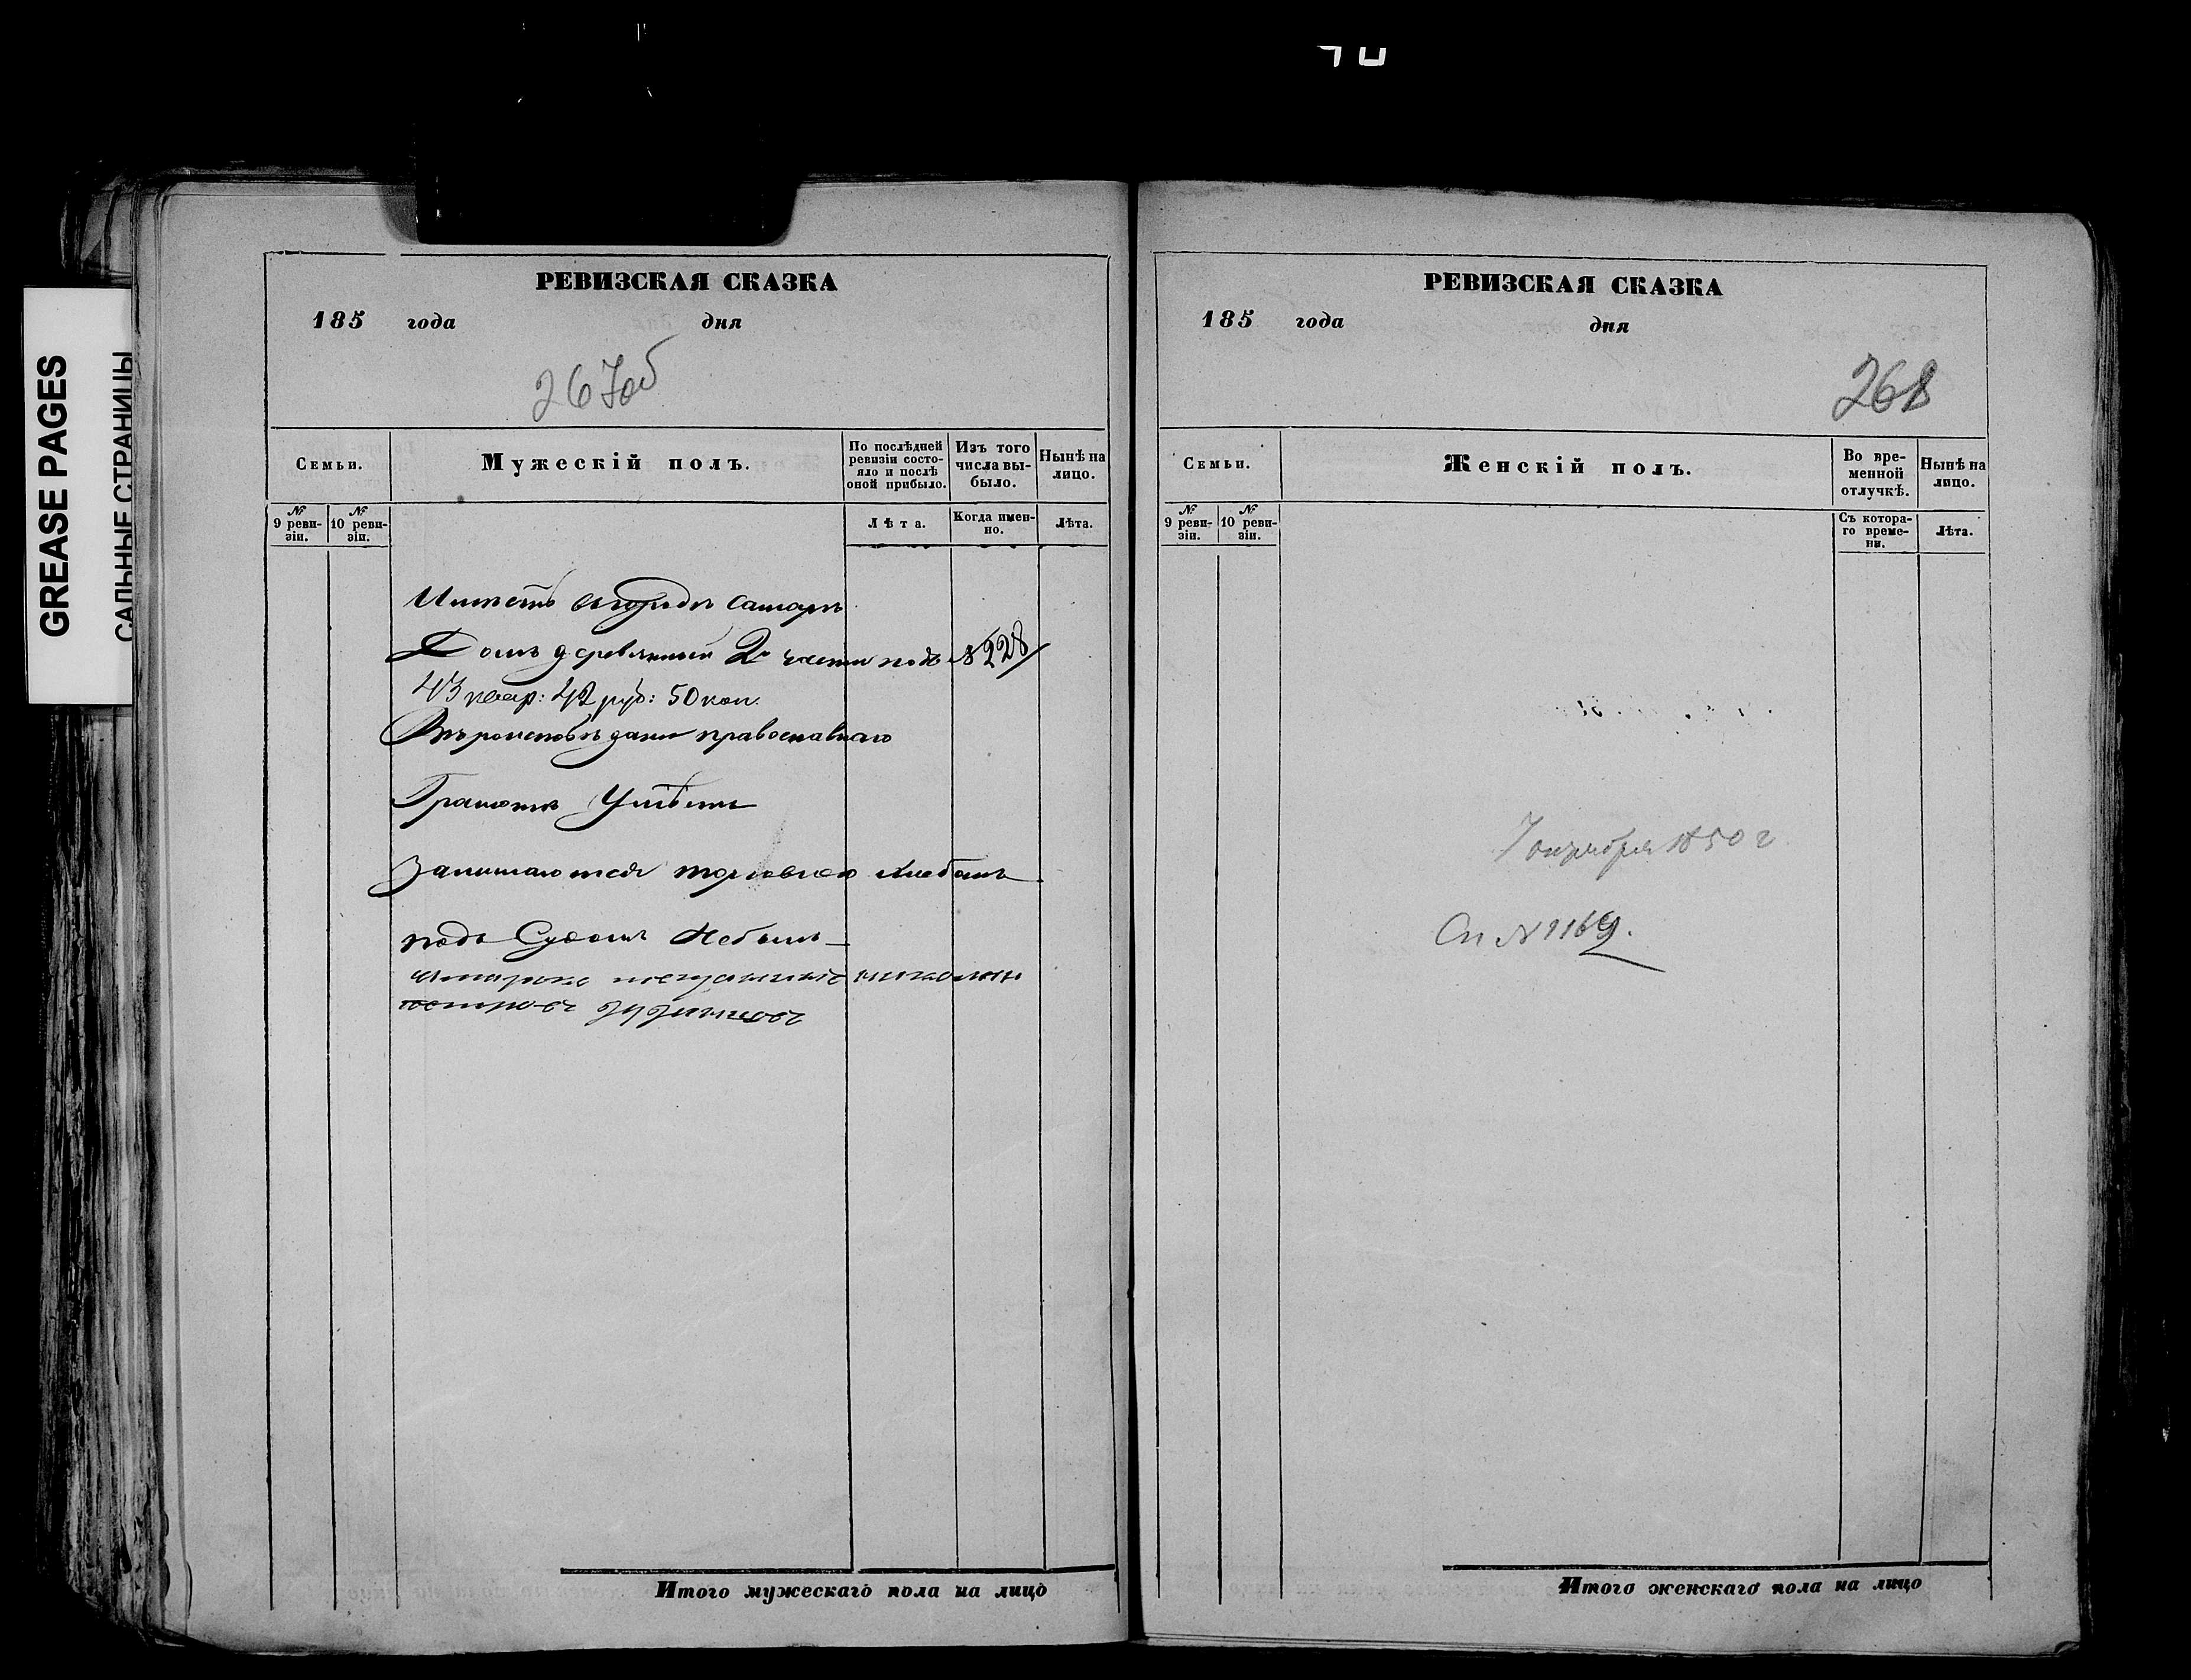 GREASE PAGES
САЛЬНЫЕ СТРАНИЦЫ
РЕВИЗСКАЯ СКАЗКА
185 года дня
267об
Семьи.
Мужескій полъ.
По послѣдней ревизіи состояло и послѣ оной прибыло.
Изъ того числа выбыло.
Нынѣ на лицо.
№ 9 ревизіи.
№ 10 ревизіи.
Лѣта.
Когда именно.
Лѣта.
Имѣетъ въ городе Самаре
Домъ деревянный 2й части подъ № 228
43 квар: 42 руб: 50 коп.
Вѣроисповѣдания православнаго
Грамоте Умѣетъ
Занимаются торговлею хлебомъ
подъ Судомъ Небылъ
РЕВИЗСКАЯ СКАЗКА
185 года дня
268
Семьи.
Женскій полъ.
Во временной отлучкѣ.
Нынѣ на лицо.
№ 9 ревизіи.
№ 10 ревизіи.
Съ котораго времени.
Лѣта.
7 октября 1850 г
Сп № 1169.
Итого мужескаго пола на лицо
Итого женскаго пола на лицо